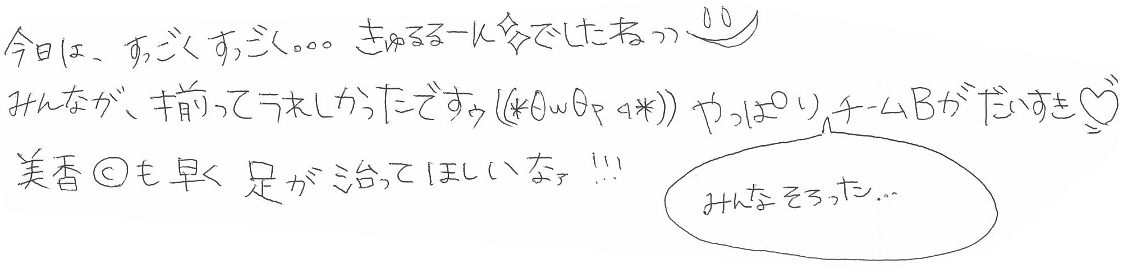 今日は、すっごくすっごく… きゅるるーん✨でしたねっっ
みんなが、揃ってうれしかったですゥ((*θωθpq*)) やっぱりチームBがだいすき♡
美香©も早く足が治ってほしいなァ!!!
みんなそろった…